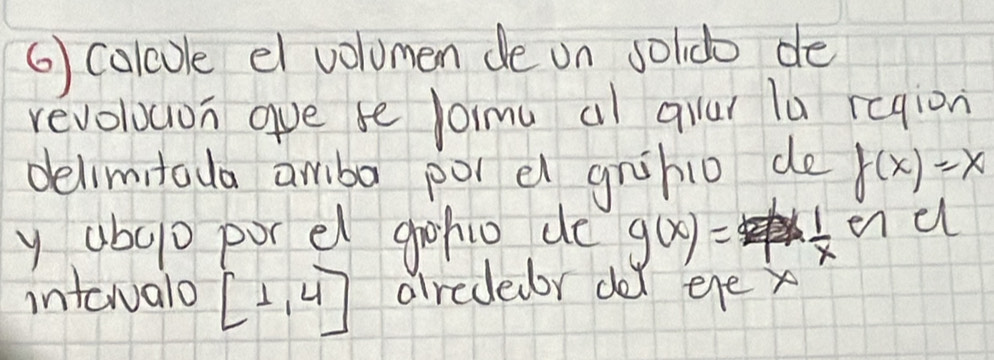 6) Calcule el volumen de un solido de
revolución que se forma al girar la region
delimitada arriba por el grafico de f(x)=x
y abajo por el grafico de g(x)= 1/x en el
intervalo [1,4] alrededor del eje x